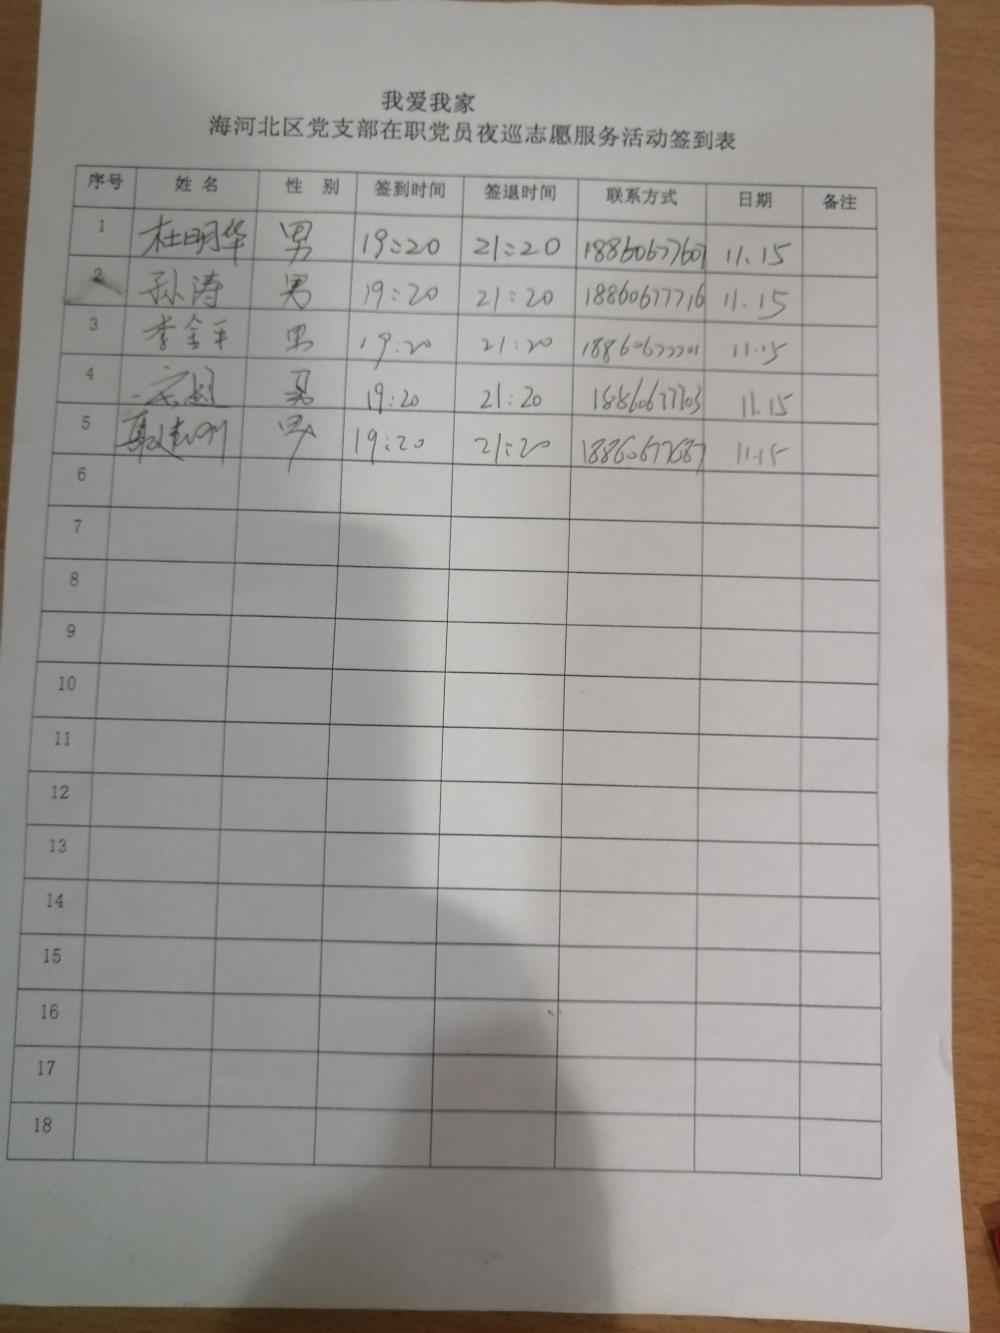 我爱我家
海河北区党支部在职党员夜巡志愿服务活动签到表
序号 姓名 性别 签到时间 签退时间 联系方式 日期 备注
1 杜明华 男 19:20 21:20 18860677607 11.15
2 孙涛 男 19:20 21:20 18860677716 11.15
3 李金平 男 19:20 21:20 11.15
4 男 19:20 21:20 18860677703 11.15
5 男 19:20 21:20 18860677687 11.15
6
7
8
9
10
11
12
13
14
15
16
17
18